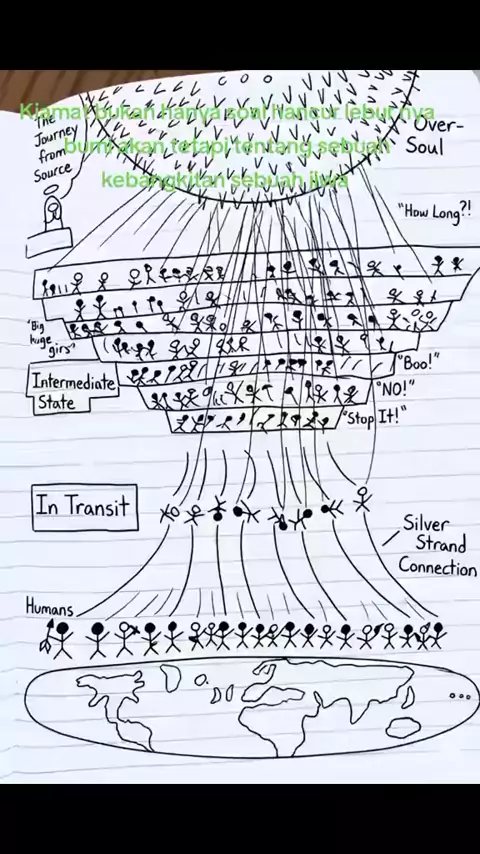 Kiamat bukan hanya soal hancur lebur nya
bumi akan tetapi tentang sebuah
kebangkitan sebuah jiwa
The
Journey
from
Source
Over-
Soul
"How Long?!
"Big
huge
girs"
Intermediate
State
"Boo!"
"NO!"
"Stop It!"
In Transit
Silver
Strand
Connection
Humans